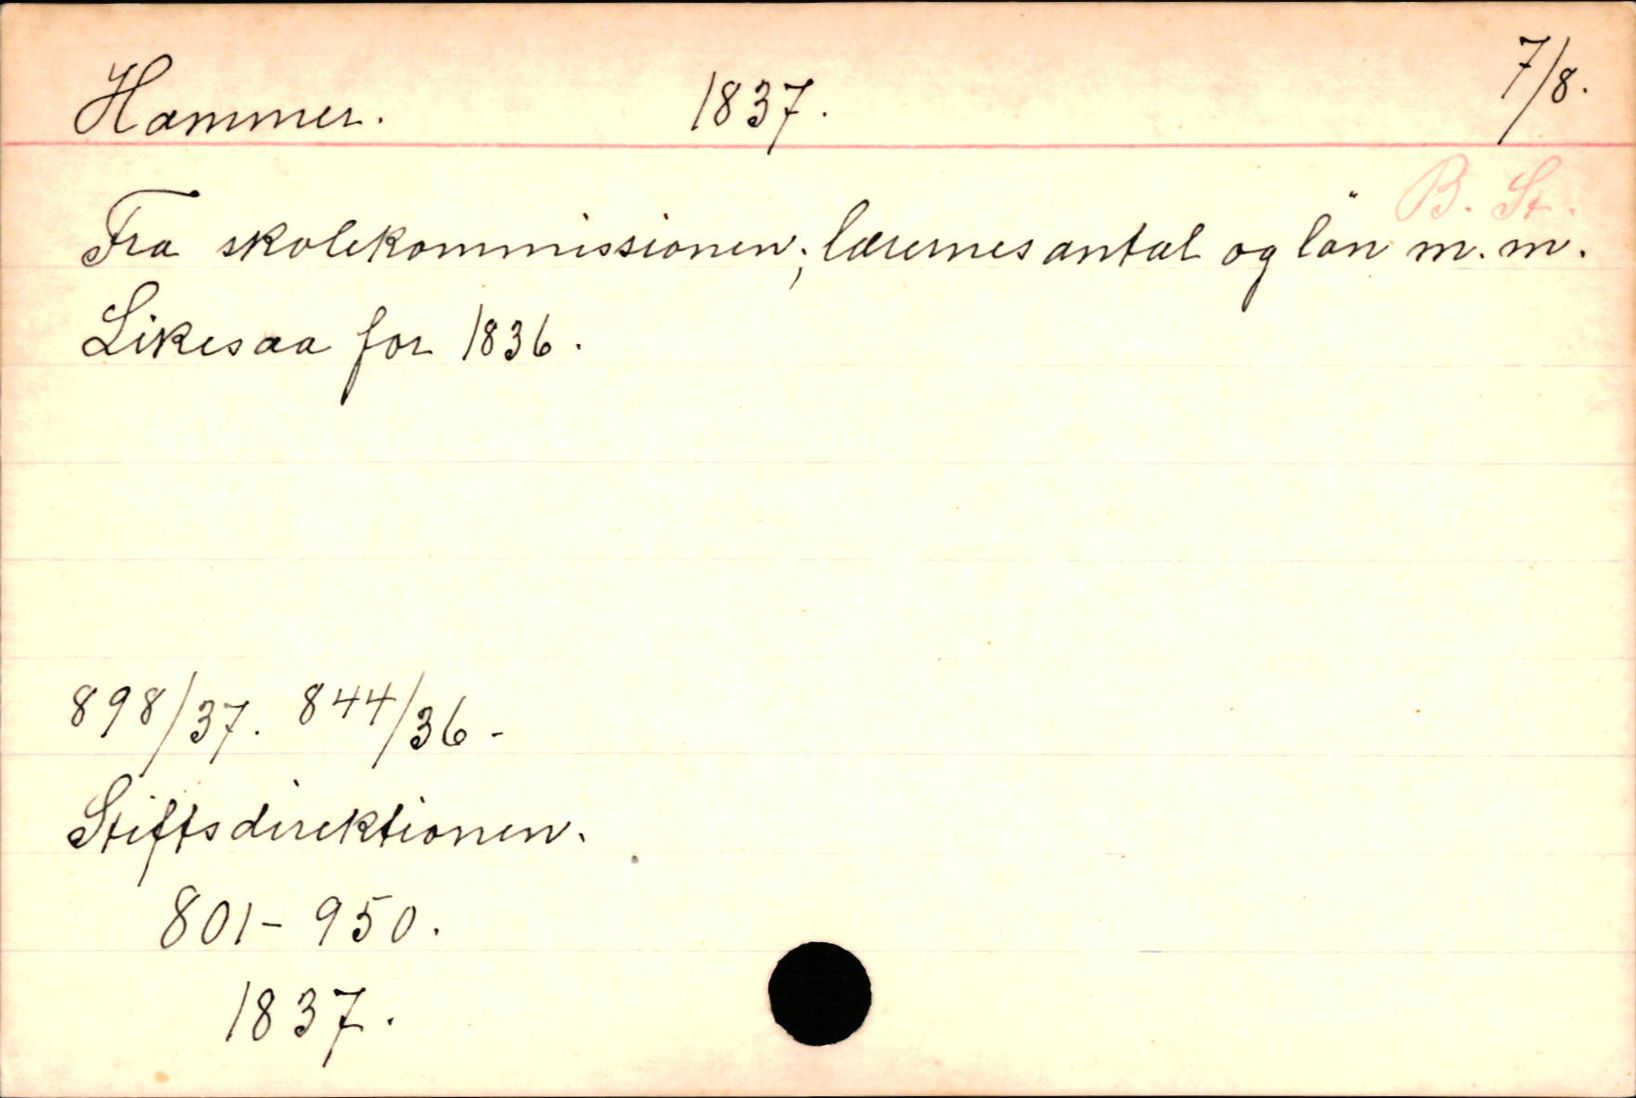 Hammer. 1837. 7/8.
B. St.
Fra skolekommissionen; lærernes antal og lön m. m.
Likesaa for 1836.
898/37. 844/36-
Stiftsdirektionen.
801-950.
1837.